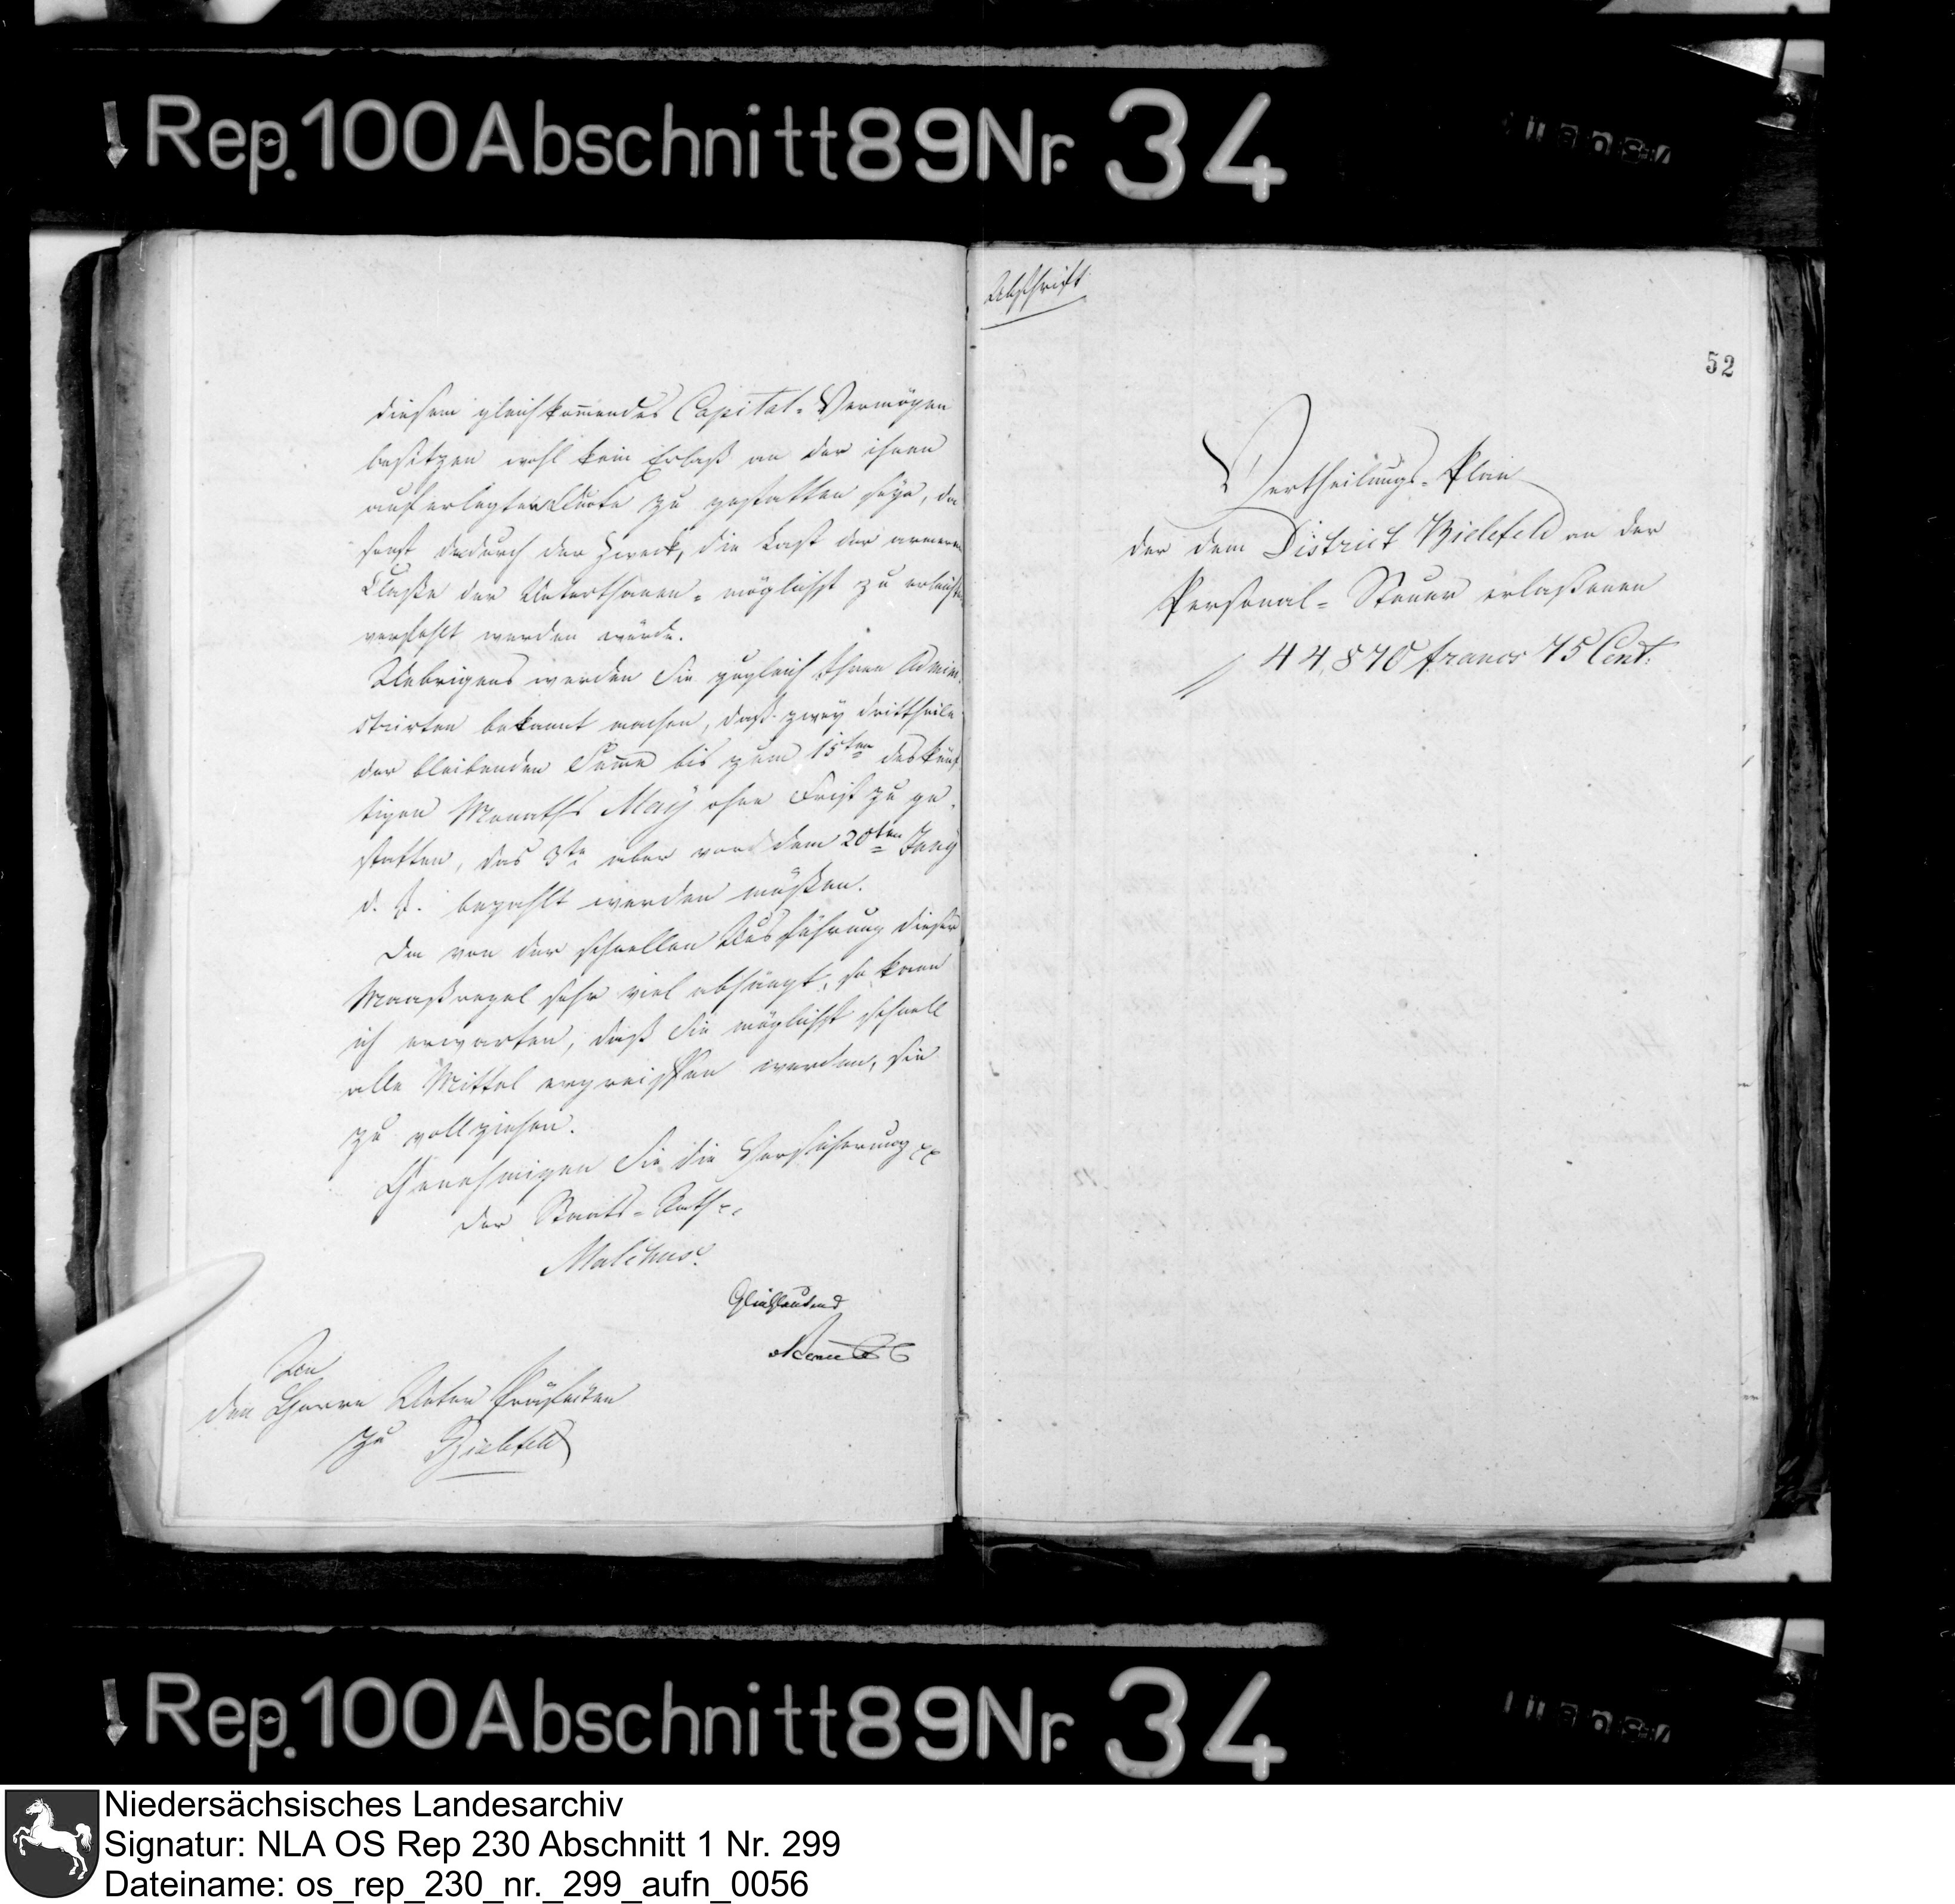 Rep. 100 Abschnitt 89 Nr. 34
diesem gleichkommendes Capital-Vermögen
besitzen wohl kein Erlaß an der ihnen
auferlegten Quote zu gestatten seye, da
sonst dadurch der Zweck, die Last der armeren
Classe der Unterthanen - möglichst zu erleich
verfehlt werden würde.
Uebrigens werden Sie zugleich Ihren Admini
strirten bekannt machen, daß zwey drittheile
der bleibenden Summe bis zum 15ten des künf
tigen Monaths May ohne Frist zu ge
statten, das 3te aber vor dem 20ten Juny
d. J. bezahlt werden müßen.
Da von der schnellen Ausführung dieser
Maasregel sehr viel abhängt, so kann
ich erwarten, daß Sie möglichst schnell
alle Mittel ergreiffen werden, sie
zu vollziehen.
Genehmigen Sie die Versicherung
der Staats-Rath
Malchus.
Gleichlautend
An
den Herrn Unter Präfecten
zu Bielefeld
Abschrift
52
Vertheilungs-Plan
der dem District Bielefeld an der
Personal-Steuer erlaßenen
44,870 francs 75 Cent:
Rep. 100 Abschnitt 89 Nr. 34
Niedersächsisches Landesarchiv
Signatur: NLA OS Rep 230 Abschnitt 1 Nr. 299
Dateiname: os_rep_230_nr._299_aufn_0056